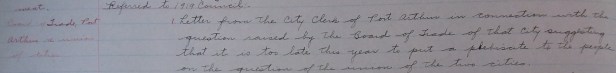 Referred to 1919 Council.
Board of Trade Port
Arthur in
Letter from the City Clerk of Port Arthur in connection with the
question raised by the Board of Trade of that City suggesting
that it is too late this year to put a plebiscite to the people
on the question of the union of the two cities.